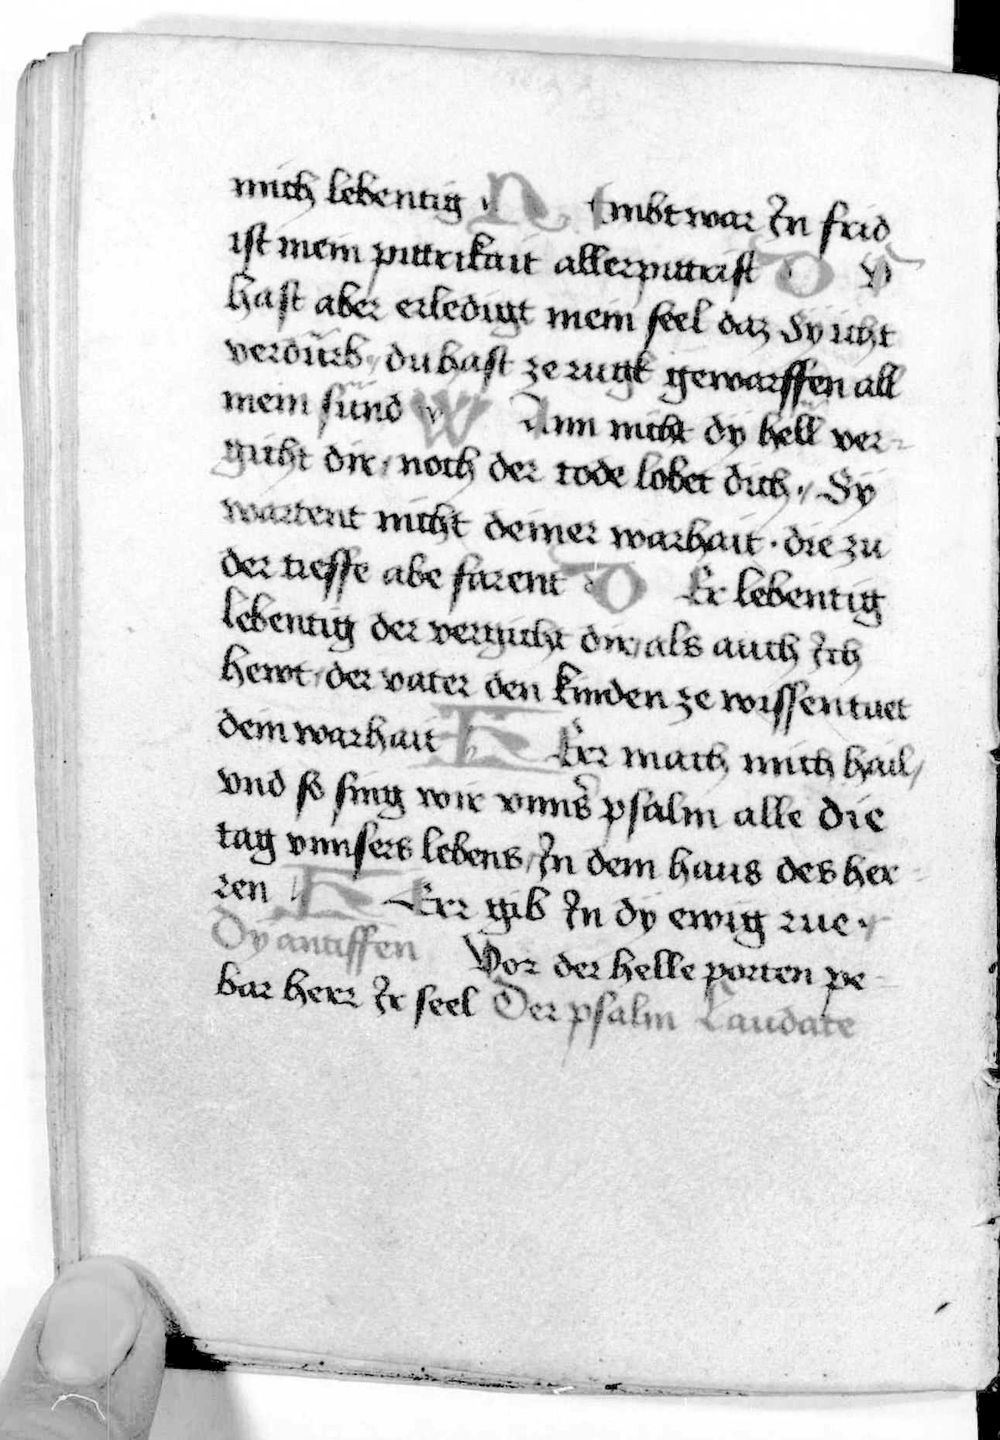 mich lebentig N Embt war In frid
ist mein pittrikait allerpittrist D V
hast aber erledigt mein seel daz Sy icht
verdürb / du hast ze rugk gewarffen all
mein sünd W Ann nicht dÿ hell ver-
gicht dir / noch der tode lobet dich / Sÿ
wartent nicht deiner warhait · die zu
der tieffe abe farent D Er lebentig
lebentig der vergicht dir / als auch Ich
hewt / der vater den kinden ze wissen tuet
dein warhait H Err mach mich hail /
vnd so sing wir vnns psalm alle die
tag vnnsers lebens / In dem haus des her-
ren H Err gib In dy ewig rue
Dy antiffen Vor der helle porten pe-
bar herr Ir seel Der psalm Laudate